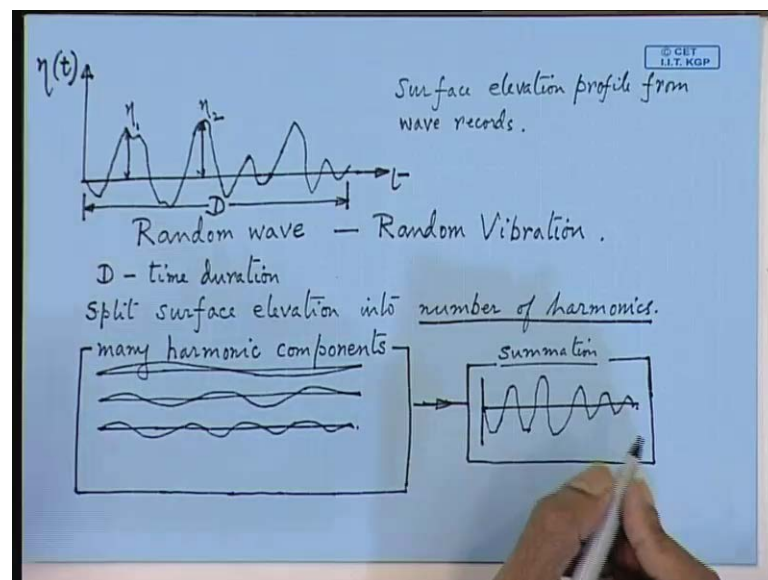 η(t)
© CET
I.I.T. KGP
η₁
η₂
Surface elevation profile from
wave records.
t
D
Random wave — Random Vibration.
D - time duration
Split surface elevation into number of harmonics.
many harmonic components
Summation